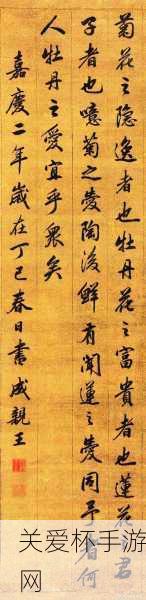 菊花之隱逸者也牡丹花之富貴者也蓮花之君
子者也噫菊之愛陶後鮮有聞蓮之愛同予者何
人牡丹之愛宜乎眾矣
嘉慶二年歲在丁巳春日書成親王
关爱杯手游
网